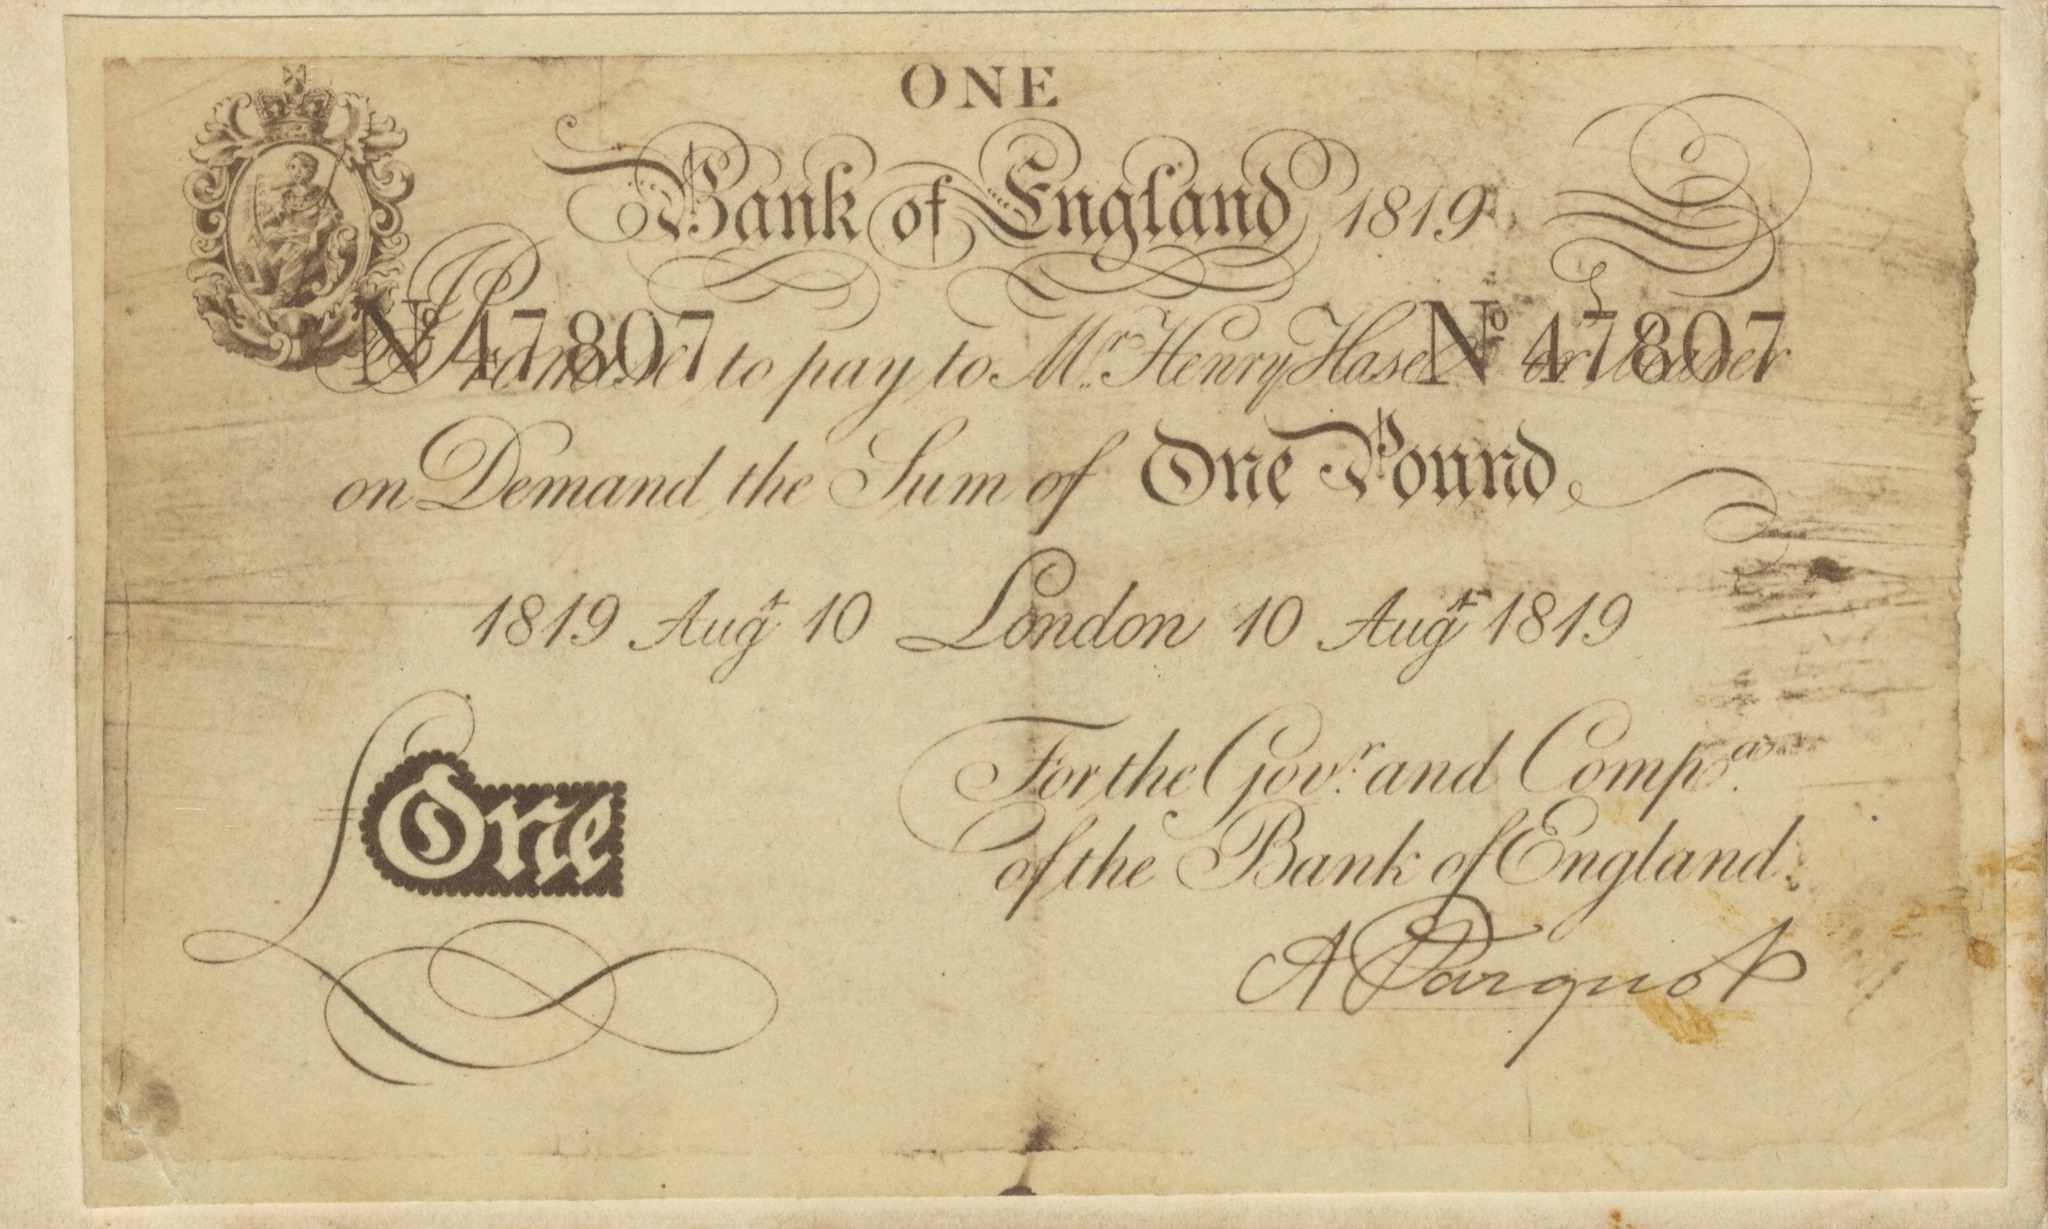 ONE
Bank of England 1819
Nº 47807 Nº 47807
I Promise to pay to Mr. Henry Hase or bearer
on Demand the Sum of One Pound
1819 Augt. 10 London 10 Augt. 1819
For the Govr. and Compa.
£ One
of the Bank of England
A Parquot